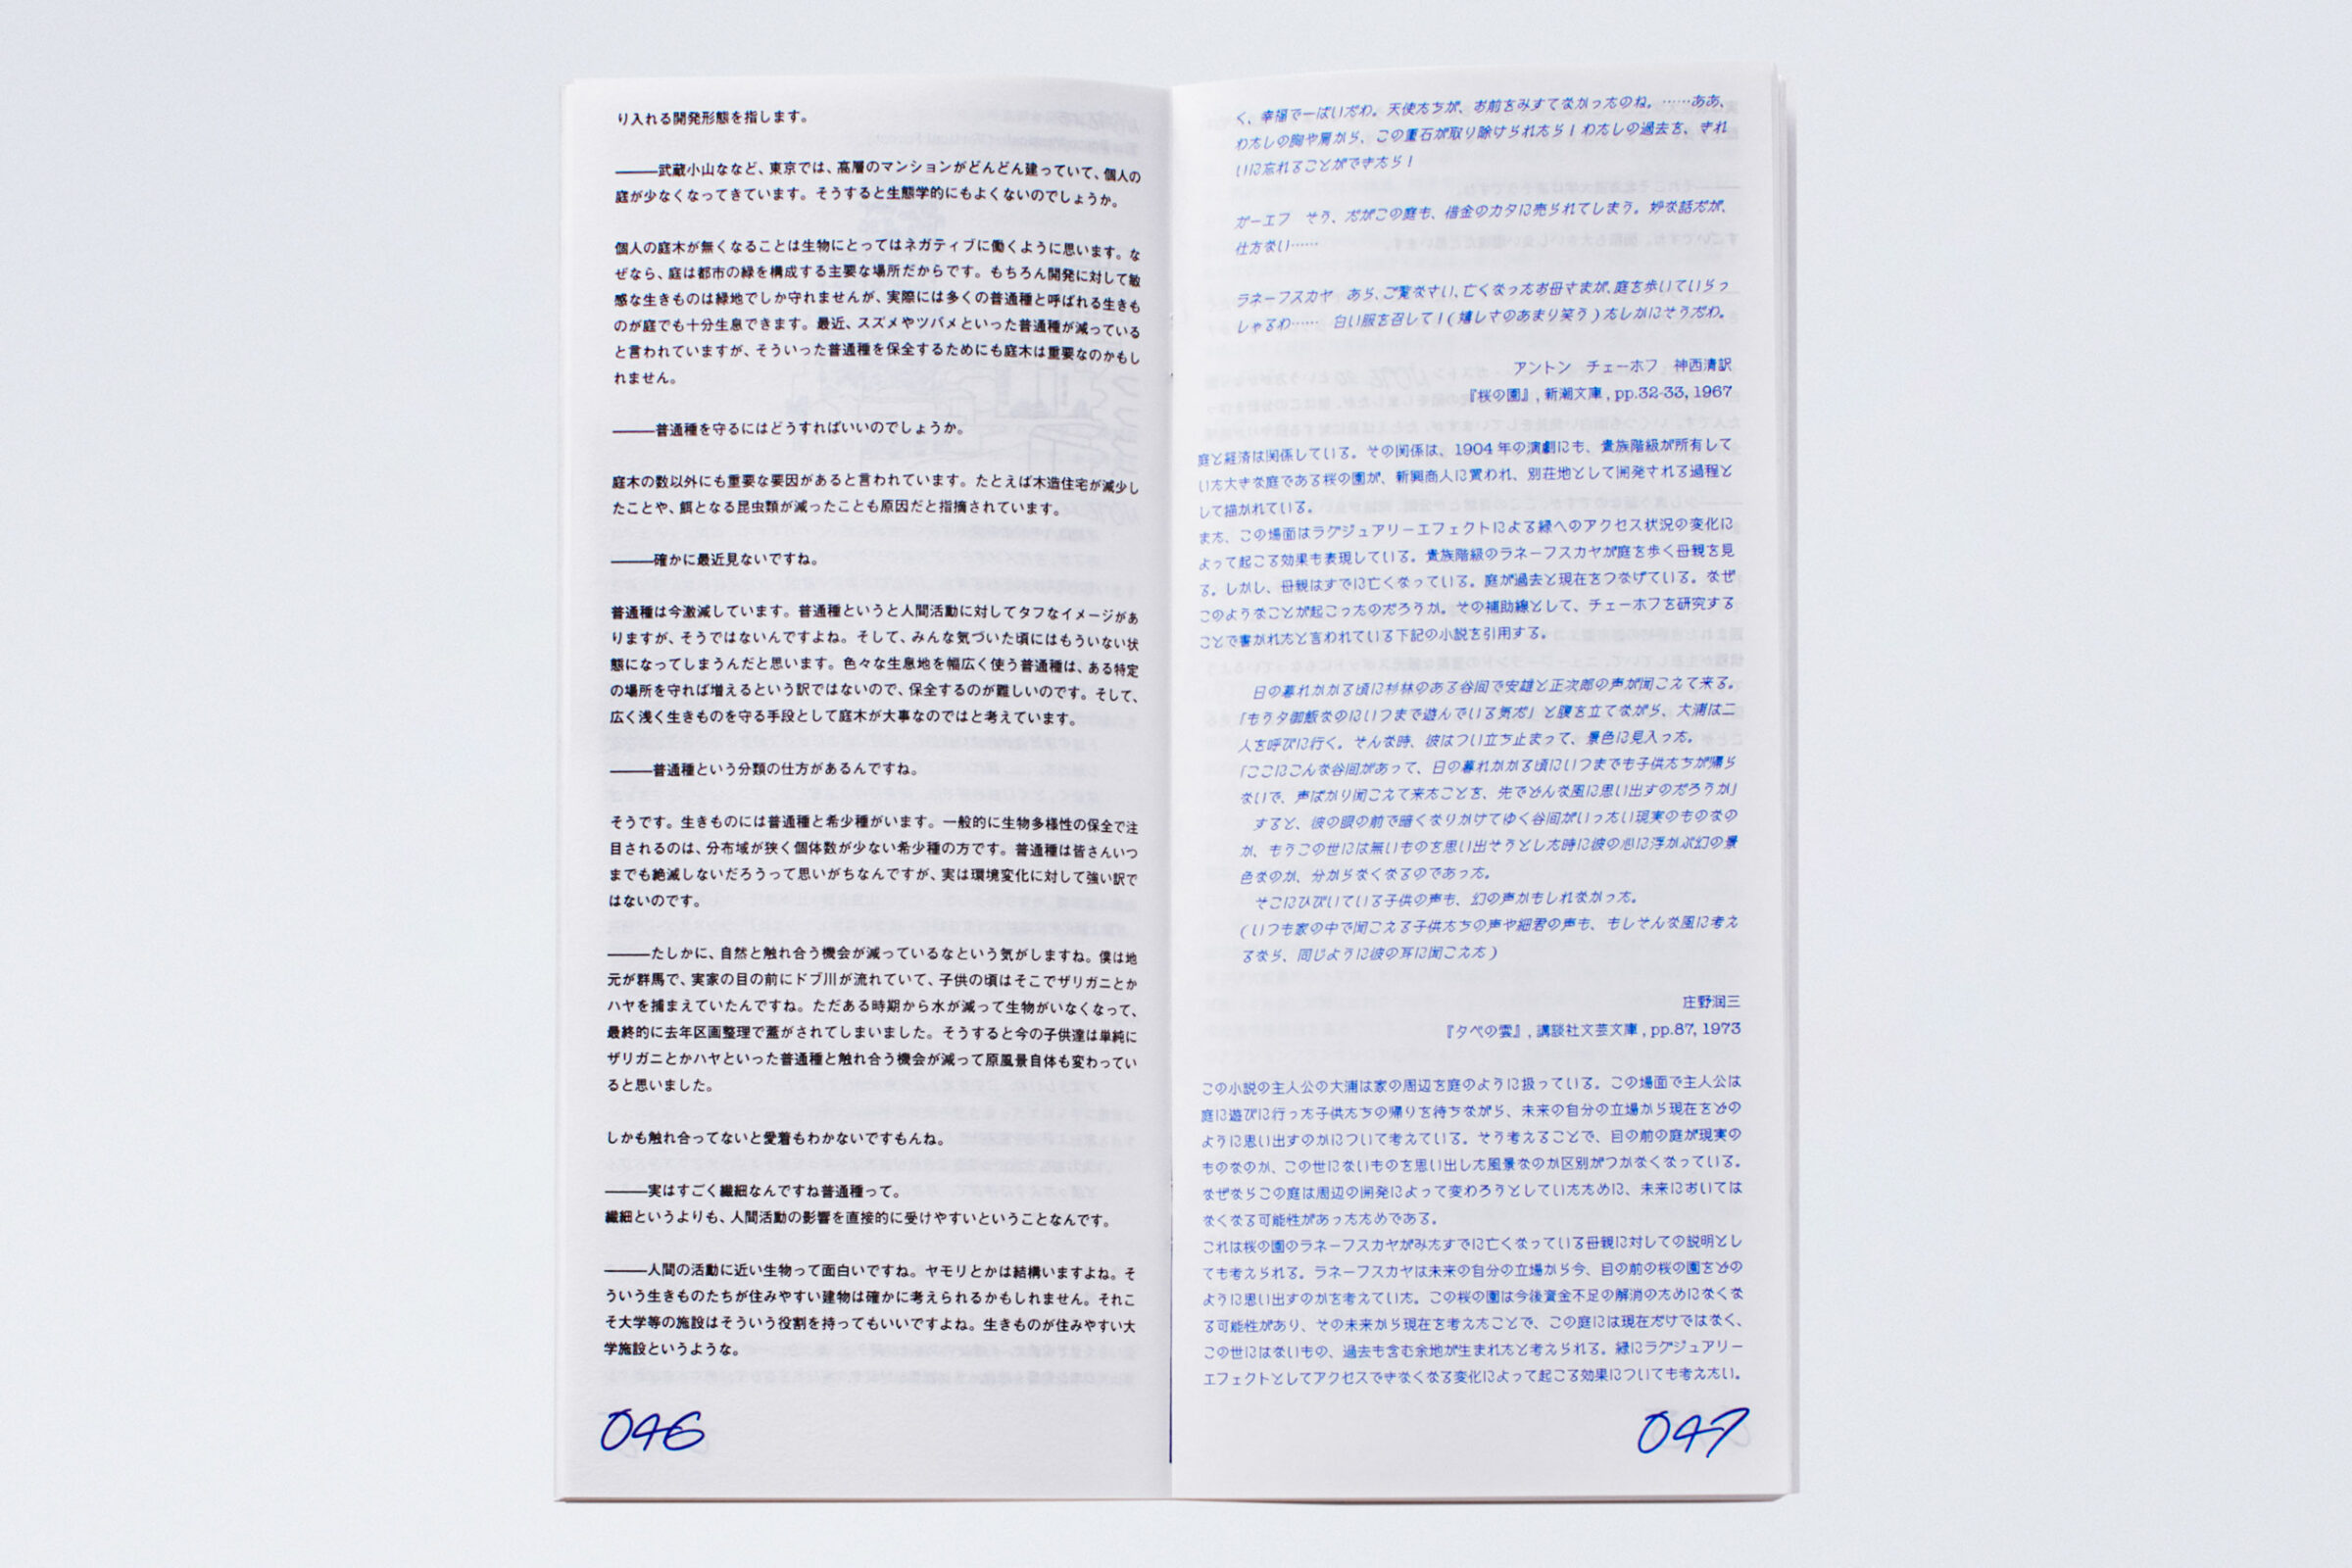 り入れる開発形態を指します。
―――武蔵小山ななど、東京では、高層のマンションがどんどん建っていて、個人の
庭が少なくなってきています。そうすると生態学的にもよくないのでしょうか。
個人の庭木が無くなることは生物にとってはネガティブに働くように思います。な
ぜなら、庭は都市の緑を構成する主要な場所だからです。もちろん開発に対して敏
感な生きものは緑地でしか守れませんが、実際には多くの普通種と呼ばれる生きも
のが庭でも十分生息できます。最近、スズメやツバメといった普通種が減っている
と言われていますが、そういった普通種を保全するためにも庭木は重要なのかもし
れません。
―――普通種を守るにはどうすればいいのでしょうか。
庭木の数以外にも重要な要因があると言われています。たとえば木造住宅が減少し
たことや、餌となる昆虫類が減ったことも原因だと指摘されています。
―――確かに最近見ないですね。
普通種は今激減しています。普通種というと人間活動に対してタフなイメージがあ
りますが、そうではないんですよね。そして、みんな気づいた頃にはもういない状
態になってしまうんだと思います。色々な生息地を幅広く使う普通種は、ある特定
の場所を守れば増えるという訳ではないので、保全するのが難しいのです。そして、
広く浅く生きものを守る手段として庭木が大事なのではと考えています。
―――普通種という分類の仕方があるんですね。
そうです。生きものには普通種と希少種がいます。一般的に生物多様性の保全で注
目されるのは、分布域が狭く個体数が少ない希少種の方です。普通種は皆さんいつ
までも絶滅しないだろうって思いがちなんですが、実は環境変化に対して強い訳で
はないのです。
―――たしかに、自然と触れ合う機会が減っているなという気がしますね。僕は地
元が群馬で、実家の目の前にドブ川が流れていて、子供の頃はそこでザリガニとか
ハヤを捕まえていたんですね。ただある時期から水が減って生物がいなくなって、
最終的に去年区画整理で蓋がされてしまいました。そうすると今の子供達は単純に
ザリガニとかハヤといった普通種と触れ合う機会が減って原風景自体も変わってい
ると思いました。
しかも触れ合ってないと愛着もわかないですもんね。
―――実はすごく繊細なんですね普通種って。
繊細というよりも、人間活動の影響を直接的に受けやすいということなんです。
―――人間の活動に近い生物って面白いですね。ヤモリとかは結構いますよね。そ
ういう生きものたちが住みやすい建物は確かに考えられるかもしれません。それこ
そ大学等の施設はそういう役割を持ってもいいですよね。生きものが住みやすい大
学施設というような。
046
く、幸福で一ぱいだわ。天使たちが、お前をみすてなかったのね。……ああ、
わたしの胸や肩から、この重石が取り除けられたら！わたしの過去を、きれ
いに忘れることができたら！
ガーエフ　そう、だがこの庭も、借金のカタに売られてしまう。妙な話だが、
仕方ない……
ラネーフスカヤ　あら、ご覧なさい、亡くなったお母さまが、庭を歩いていらっ
しゃるわ……　白い服を召して！（嬉しさのあまり笑う）たしかにそうだわ。
アントン　チェーホフ　神西清訳
『桜の園』, 新潮文庫 , pp.32-33, 1967
庭と経済は関係している。その関係は、1904 年の演劇にも、貴族階級が所有して
いた大きな庭である桜の園が、新興商人に買われ、別荘地として開発される過程と
して描かれている。
また、この場面はラグジュアリーエフェクトによる緑へのアクセス状況の変化に
よって起こる効果も表現している。貴族階級のラネーフスカヤが庭を歩く母親を見
る。しかし、母親はすでに亡くなっている。庭が過去と現在をつなげている。なぜ
このようなことが起こったのだろうか。その補助線として、チェーホフを研究する
ことで書かれたと言われている下記の小説を引用する。
日の暮れかかる頃に杉林のある谷間で安雄と正次郎の声が聞こえて来る。
「もう夕御飯なのにいつまで遊んでいる気だ」と腹を立てながら、大浦は二
人を呼びに行く。そんな時、彼はつい立ち止まって、景色に見入った。
「ここにこんな谷間があって、日の暮れかかる頃にいつまでも子供たちが帰ら
ないで、声ばかり聞こえて来たことを、先でどんな風に思い出すのだろうか」
すると、彼の眼の前で暗くなりかけてゆく谷間がいったい現実のものなの
か、もうこの世には無いものを思い出そうとした時に彼の心に浮かぶ幻の景
色なのか、分からなくなるのであった。
そこにひびいている子供の声も、幻の声かもしれなかった。
（いつも家の中で聞こえる子供たちの声や細君の声も、もしそんな風に考え
るなら、同じように彼の耳に聞こえた）
庄野潤三
『夕べの雲』, 講談社文芸文庫 , pp.87, 1973
この小説の主人公の大浦は家の周辺を庭のように扱っている。この場面で主人公は
庭に遊びに行った子供たちの帰りを待ちながら、未来の自分の立場から現在をどの
ように思い出すのかについて考えている。そう考えることで、目の前の庭が現実の
ものなのか、この世にないものを思い出した風景なのか区別がつかなくなっている。
なぜならこの庭は周辺の開発によって変わろうとしていたために、未来においては
なくなる可能性があったためである。
これは桜の園のラネーフスカヤがみたすでに亡くなっている母親に対しての説明とし
ても考えられる。ラネーフスカヤは未来の自分の立場から今、目の前の桜の園をどの
ように思い出すのかを考えていた。この桜の園は今後資金不足の解消のためになくな
る可能性があり、その未来から現在を考えたことで、この庭には現在だけではなく、
この世にはないもの、過去も含む余地が生まれたと考えられる。緑にラグジュアリー
エフェクトとしてアクセスできなくなる変化によって起こる効果についても考えたい。
047